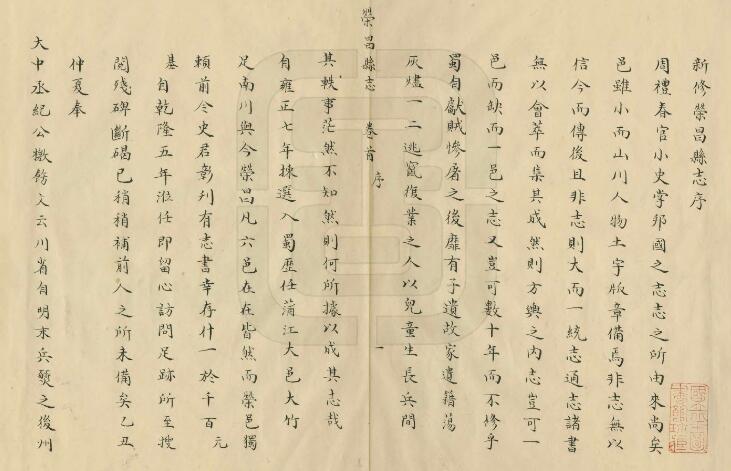 新修榮昌縣志序
周禮春官小史掌邦國之志志之所由來尚矣
邑雖小而山川人物土宇版章備焉非志無以
信今而傳後且非志則大而一統志通志諸書
無以會萃而集其成然則方輿之內志豈可一
邑而缺而一邑之志又豈可數十年而不修乎
蜀自獻賊慘屠之後靡有孑遺故家遺籍蕩
灰燼一二逃竄復業之人以兒童生長兵間
榮昌縣志 卷首 序 一
其軼事茫然不知然則何所據以成其志哉
自雍正七年揀選入蜀歷任蒲江大邑大竹
足南川與今榮昌凡六邑在在皆然而榮邑獨
賴前令史君彰刋有志書幸存什一於千百元
基自乾隆五年涖任即留心訪問足跡所至搜
閱殘碑斷碣已稍稍補前人之所未備矣乙丑
仲夏奉
大中丞紀公檄餝文云川省自明末兵燹之後州